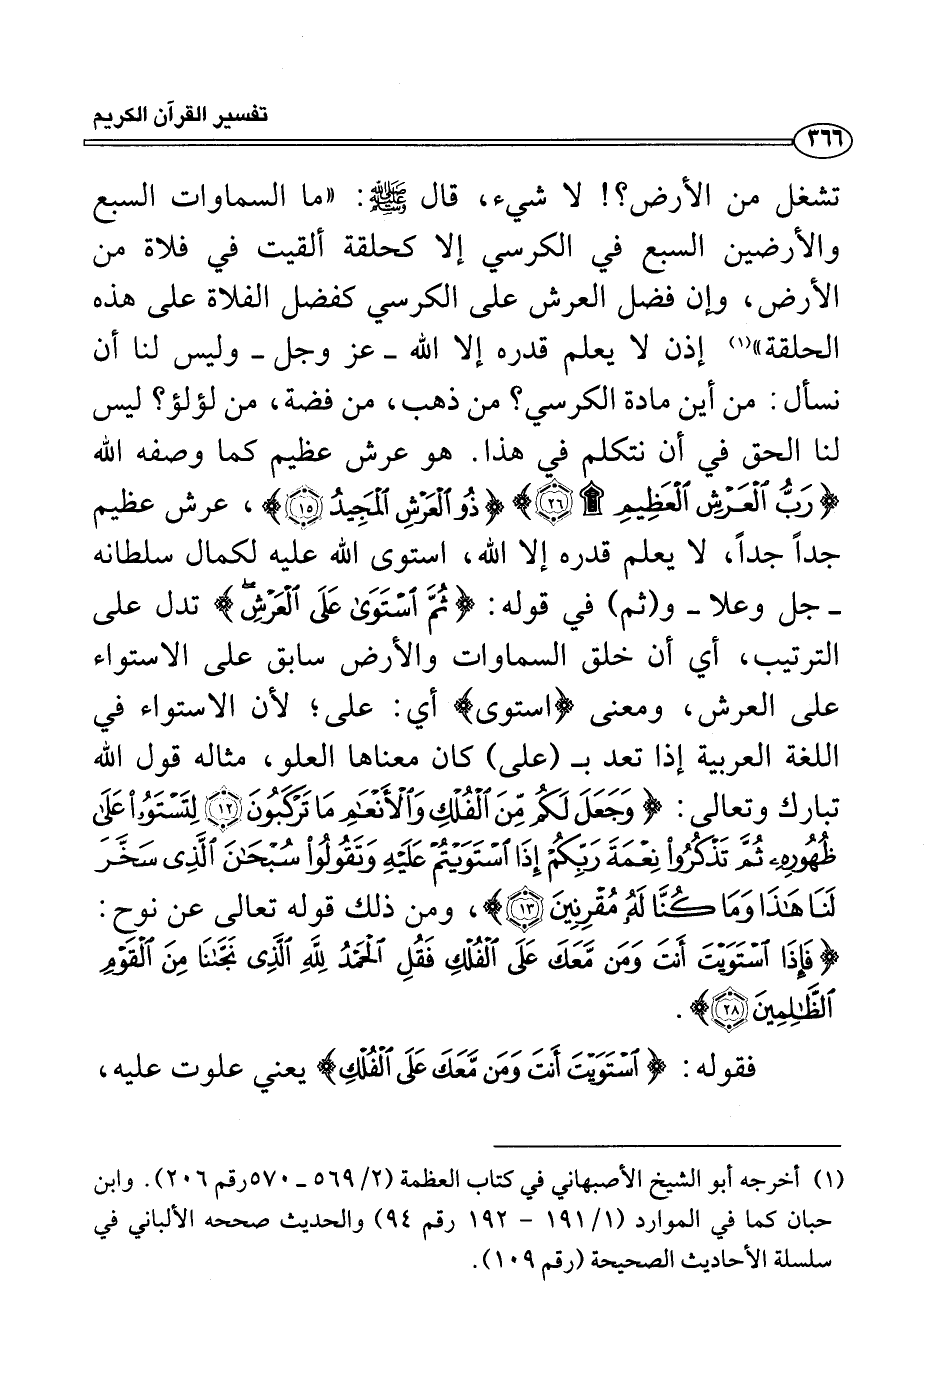 تفسير القرآن الكريم
٣٦٦
تشغل من الأرض؟! لا شيء، قال ﷺ: «ما السماوات السبع
والأرضين السبع في الكرسي إلا كحلقة ألقيت في فلاة من
الأرض، وإن فضل العرش على الكرسي كفضل الفلاة على هذه
الحلقة»(١) إذن لا يعلم قدره إلا الله ـ عز وجل ـ وليس لنا أن
نسأل: من أين مادة الكرسي؟ من ذهب، من فضة، من لؤلؤ؟ ليس
لنا الحق في أن نتكلم في هذا. هو عرش عظيم كما وصفه الله
﴿رَبُّ ٱلْعَرْشِ ٱلْعَظِيمِ ۩ ٢٦﴾ ﴿ذُو ٱلْعَرْشِ ٱلْمَجِيدُ ١٥﴾، عرش عظيم
جداً جداً، لا يعلم قدره إلا الله، استوى الله عليه لكمال سلطانه
ـ جل وعلا ـ و(ثم) في قوله: ﴿ثُمَّ ٱسْتَوَىٰ عَلَى ٱلْعَرْشِۖ﴾ تدل على
الترتيب، أي أن خلق السماوات والأرض سابق على الاستواء
على العرش، ومعنى ﴿استوى﴾ أي: على؛ لأن الاستواء في
اللغة العربية إذا تعد بـ (على) كان معناها العلو، مثاله قول الله
تبارك وتعالى: ﴿وَجَعَلَ لَكُم مِّنَ ٱلْفُلْكِ وَٱلْأَنْعَٰمِ مَا تَرْكَبُونَ ١٢ لِتَسْتَوُۥا۟ عَلَىٰ
ظُهُورِهِۦ ثُمَّ تَذْكُرُوا۟ نِعْمَةَ رَبِّكُمْ إِذَا ٱسْتَوَيْتُمْ عَلَيْهِ وَتَقُولُوا۟ سُبْحَٰنَ ٱلَّذِى سَخَّرَ
لَنَا هَٰذَا وَمَا كُنَّا لَهُۥ مُقْرِنِينَ ١٣﴾، ومن ذلك قوله تعالى عن نوح:
﴿فَإِذَا ٱسْتَوَيْتَ أَنتَ وَمَن مَّعَكَ عَلَى ٱلْفُلْكِ فَقُلِ ٱلْحَمْدُ لِلَّهِ ٱلَّذِى نَجَّىٰنَا مِنَ ٱلْقَوْمِ
ٱلظَّٰلِمِينَ ٢٨﴾.
فقوله: ﴿ٱسْتَوَيْتَ أَنتَ وَمَن مَّعَكَ عَلَى ٱلْفُلْكِ﴾ يعني علوت عليه،
(١) أخرجه أبو الشيخ الأصبهاني في كتاب العظمة (٢/ ٥٦٩ ـ ٥٧٠رقم ٢٠٦). وابن
حبان كما في الموارد (١/ ١٩١ – ١٩٢ رقم ٩٤) والحديث صححه الألباني في
سلسلة الأحاديث الصحيحة (رقم ١٠٩).